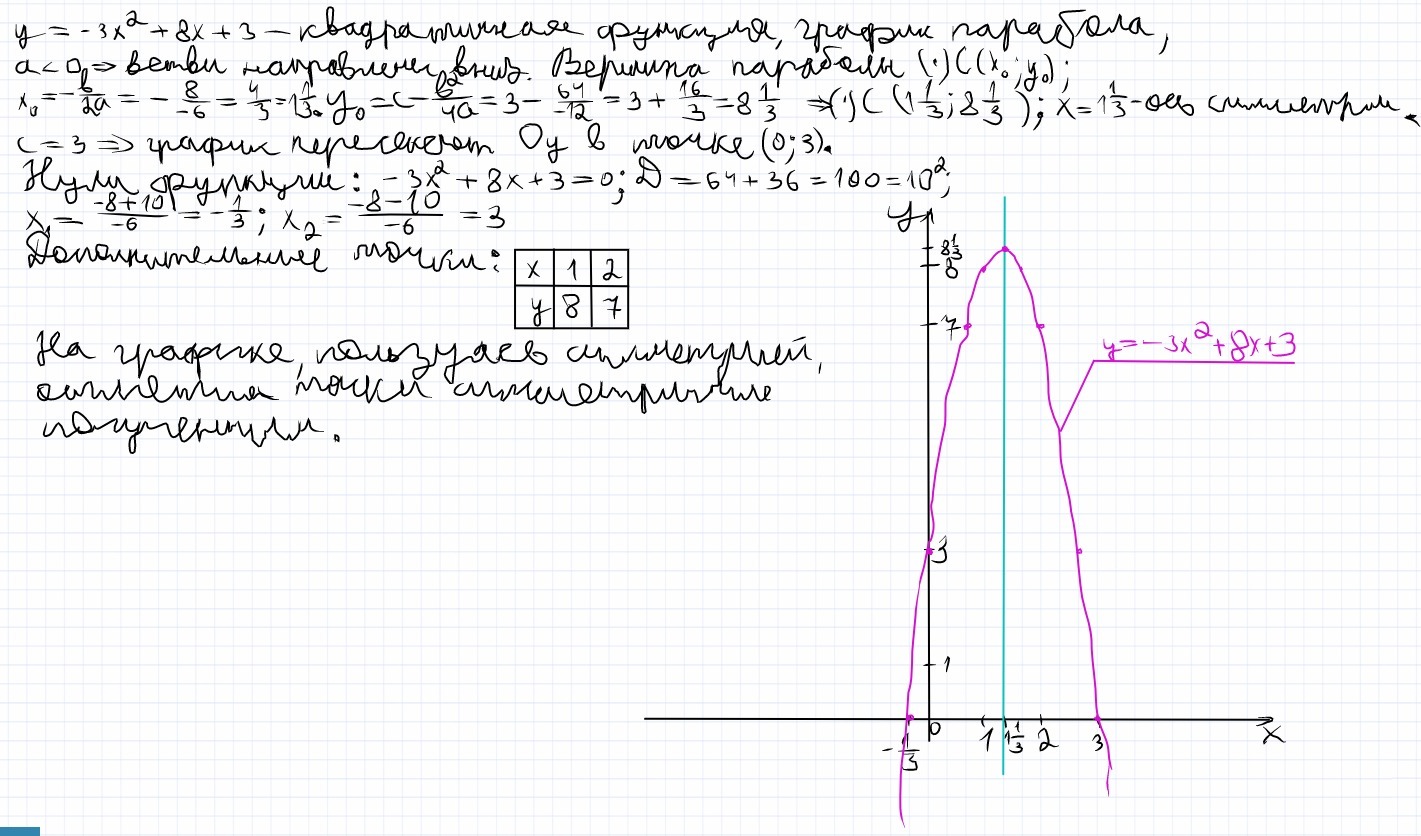 y = -3x² + 8x + 3 – квадратичная функция, график парабола,
a < 0, ⇒ ветви направлены вниз. Вершина параболы (·) C (x₀; y₀);
x₀ = -b/2a = -8/-6 = 4/3 = 1 1/3. y₀ = c - b²/4a = 3 - 64/-12 = 3 + 16/3 = 8 1/3 ⇒ (·) C (1 1/3; 8 1/3); x = 1 1/3 - ось симметрии.
c = 3 ⇒ график пересекает Oy в точке (0; 3).
Нули функции: -3x² + 8x + 3 = 0; D = 64 + 36 = 100 = 10²;
x₁ = -8+10/-6 = -1/3; x₂ = -8-10/-6 = 3
Дополнительные точки:
x 1 2
y 8 7
На графике, пользуясь симметрией,
отметим точки симметричные
полученным.
y
8 1/3
8
7
y = -3x² + 8x + 3
3
1
0 1 1 1/3 2 3 x
-1/3